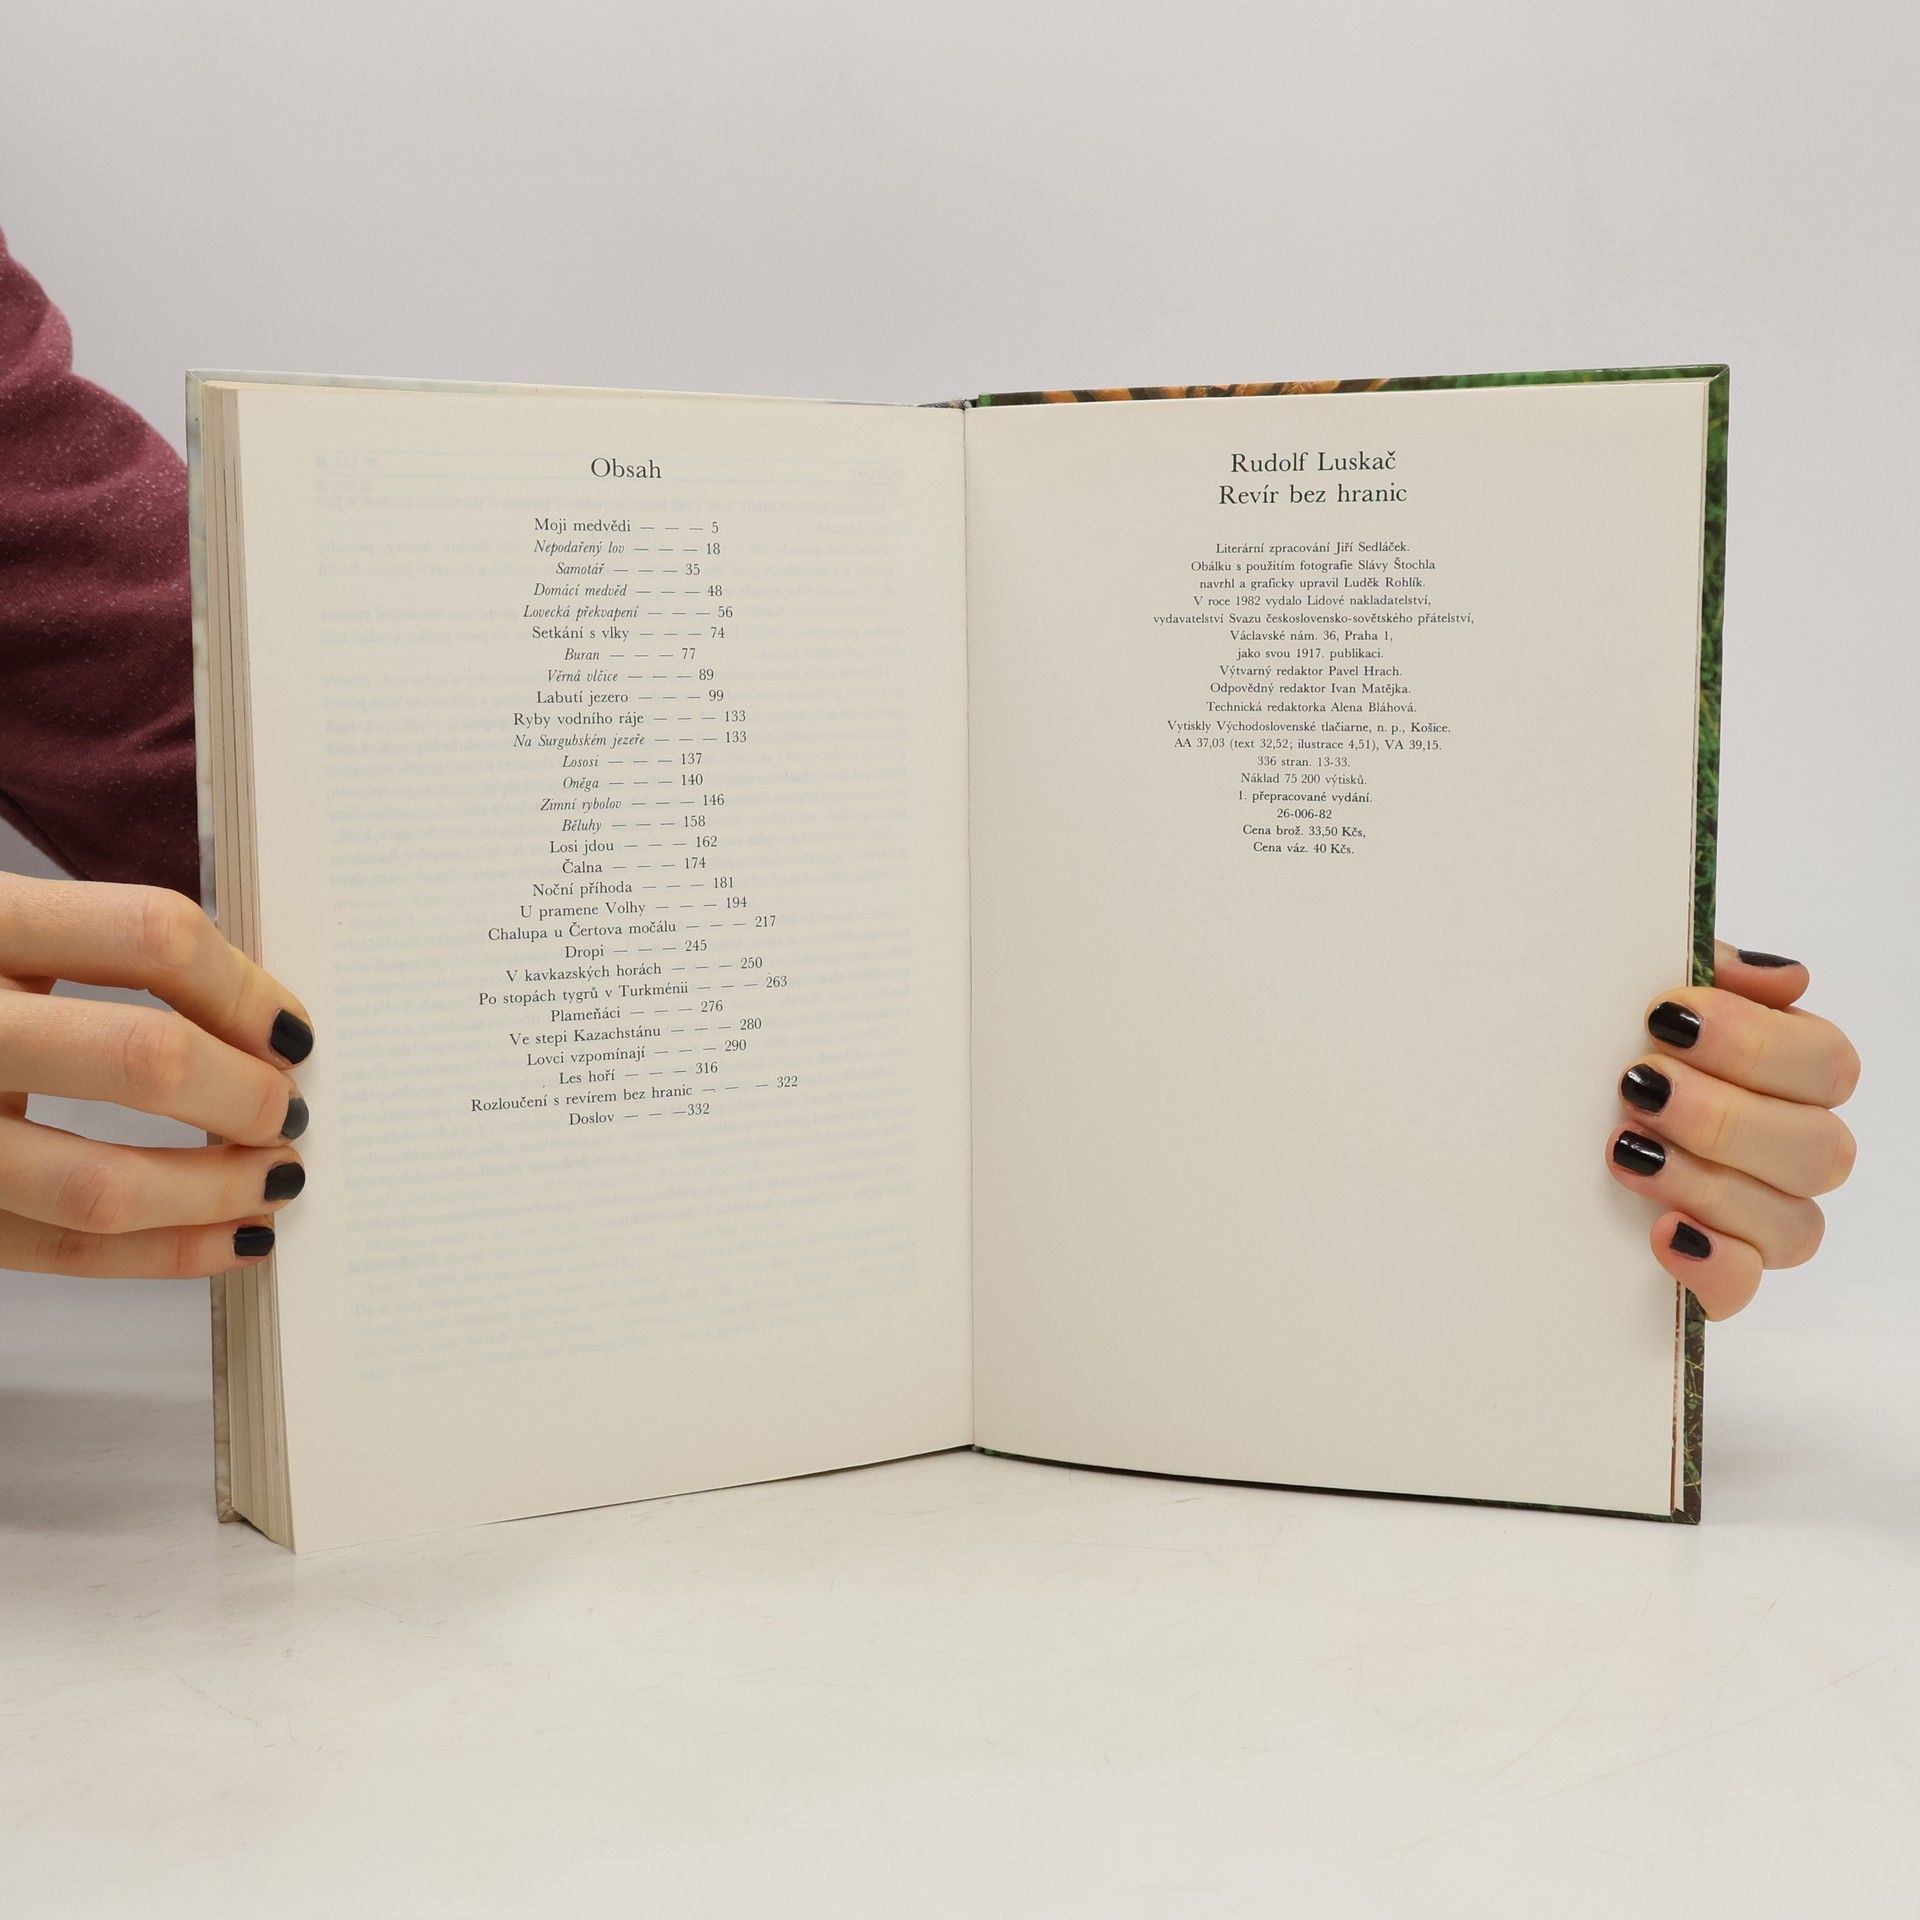 Obsah
Moji medvědi — — — 5
Nepodařený lov — — — 18
Samotář — — — 35
Domácí medvěd — — — 48
Lovecká překvapení — — — 56
Setkání s vlky — — — 74
Buran — — — 77
Věrná vlčice — — — 89
Labutí jezero — — — 99
Ryby vodního ráje — — — 133
Na Surgubském jezeře — — — 133
Lososi — — — 137
Oněga — — — 140
Zimní rybolov — — — 146
Běluhy — — — 158
Losi jdou — — — 162
Čalna — — — 174
Noční příhoda — — — 181
U pramene Volhy — — — 194
Chalupa u Čertova močálu — — — 217
Dropi — — — 245
V kavkazských horách — — — 250
Po stopách tygrů v Turkménii — — — 263
Plameňáci — — — 276
Ve stepi Kazachstánu — — — 280
Lovci vzpomínají — — — 290
Les hoří — — — 316
Rozloučení s revírem bez hranic — — — 322
Doslov — — —332
Rudolf Luskač
Revír bez hranic
Literární zpracování Jiří Sedláček.
Obálku s použitím fotografie Slávy Štochla
navrhl a graficky upravil Luděk Rohlík.
V roce 1982 vydalo Lidové nakladatelství,
vydavatelství Svazu československo-sovětského přátelství,
Václavské nám. 36, Praha 1,
jako svou 1917. publikaci.
Výtvarný redaktor Pavel Hrach.
Odpovědný redaktor Ivan Matějka.
Technická redaktorka Alena Bláhová.
Vytiskly Východoslovenské tlačiarne, n. p., Košice.
AA 37,03 (text 32,52; ilustrace 4,51), VA 39,15.
336 stran. 13-33.
Náklad 75 200 výtisků.
1. přepracované vydání.
26-006-82
Cena brož. 33,50 Kčs,
Cena váz. 40 Kčs.